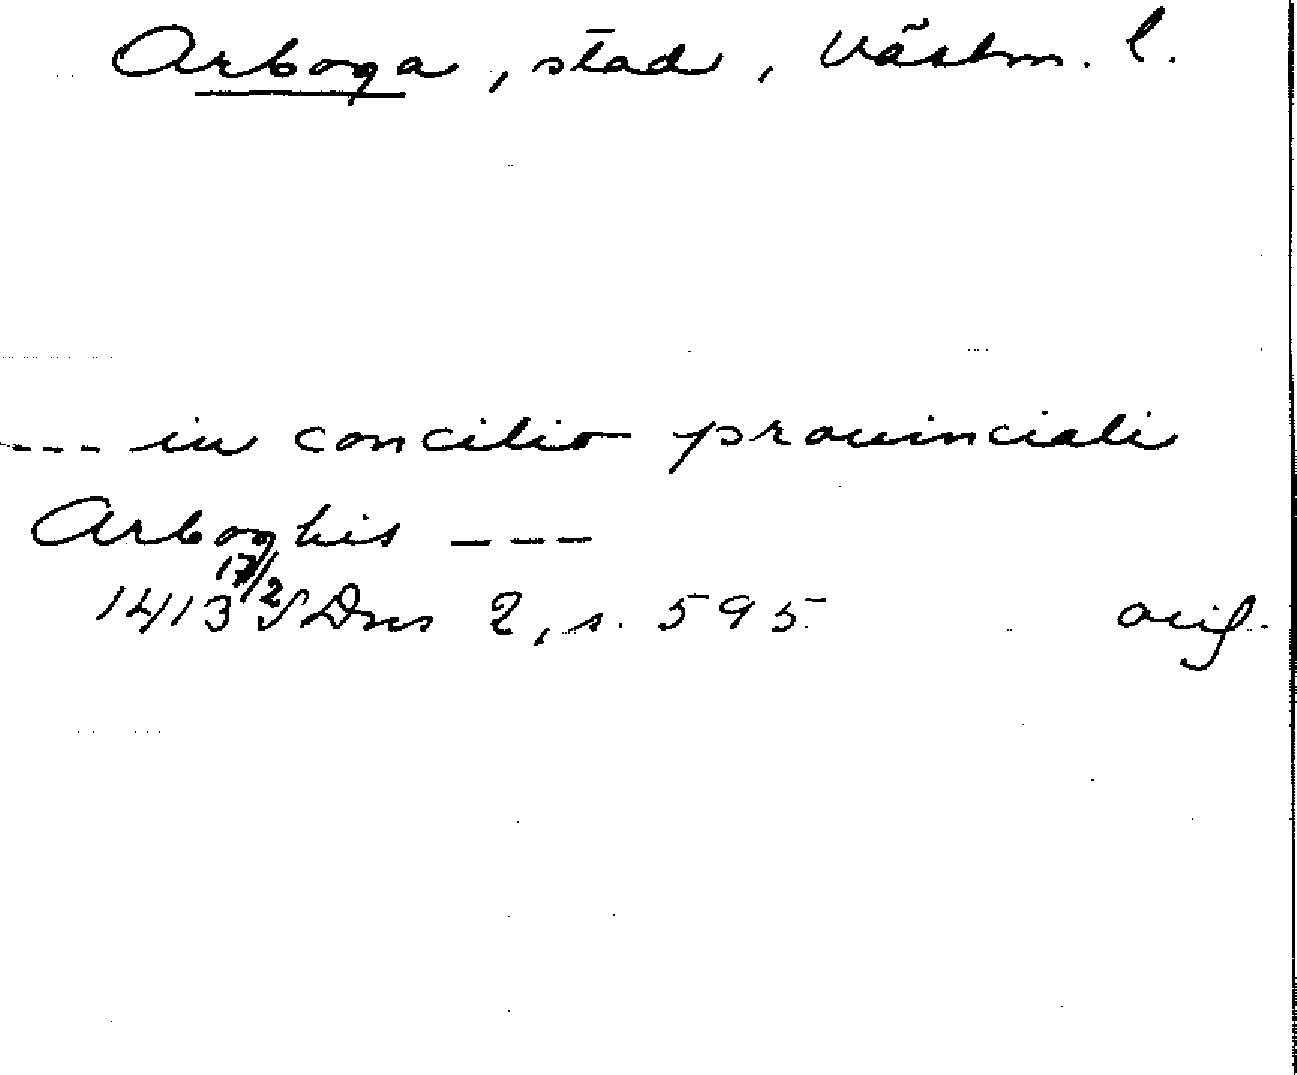 Arboga, stad, Västm. l.
--- in concilio prouinciali
Arboghis ---
1413 17/2 SDns 2, s. 595 orig.